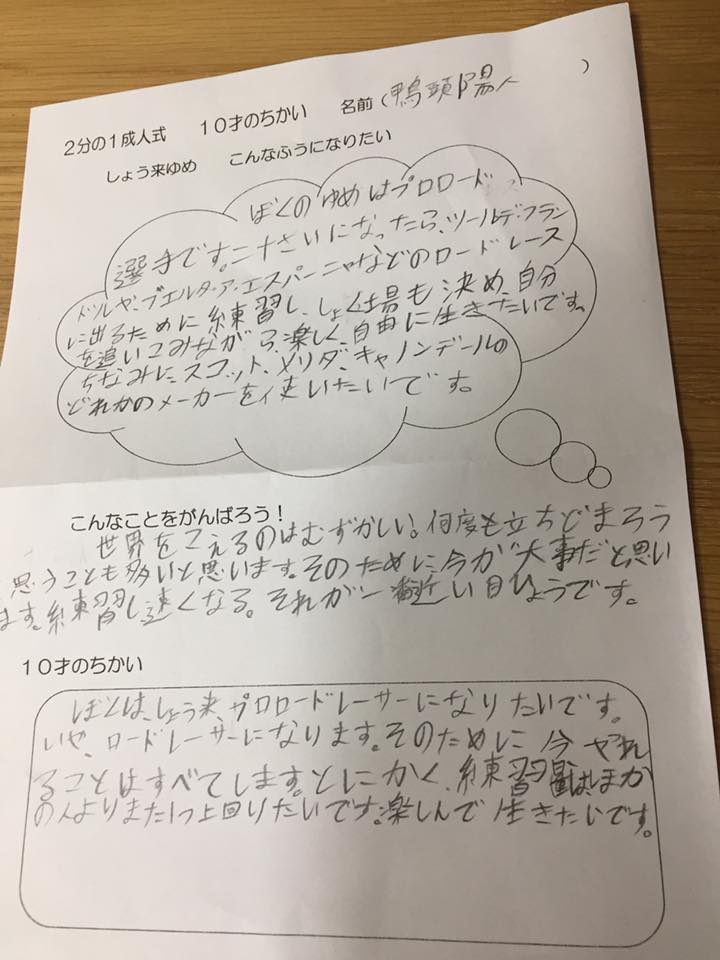 2分の1成人式 10才のちかい 名前(鴨頭陽人 )
しょう来ゆめ こんなふうになりたい
ぼくのゆめはプロロードレス
選手です。二十さいになったら、ツールデ・フラン
ドルや、ブエルタ・ア・エスパーニャなどのロードレース
に出るために練習し、しょく場も決め、自分
を追いこみながら、楽しく、自由に生きたいです。
ちなみに、スコット、メリダ、キャノンデールの
どれかのメーカーを使いたいです。
こんなことをがんばろう!
世界をこえるのはむずかしい。何度も立ちどまろう
思うことも多いと思います。そのために今が大事だと思い
ます。練習し速くなる。それが一番近い目ひょうです。
10才のちかい
ぼくは、しょう来、プロロードレーサーになりたいです。
いや、ロードレーサーになります。そのために今やれ
ることはすべてします。とにかく、練習量はほか
の人よりまた1つ上回りたいです。楽しんで生きたいです。